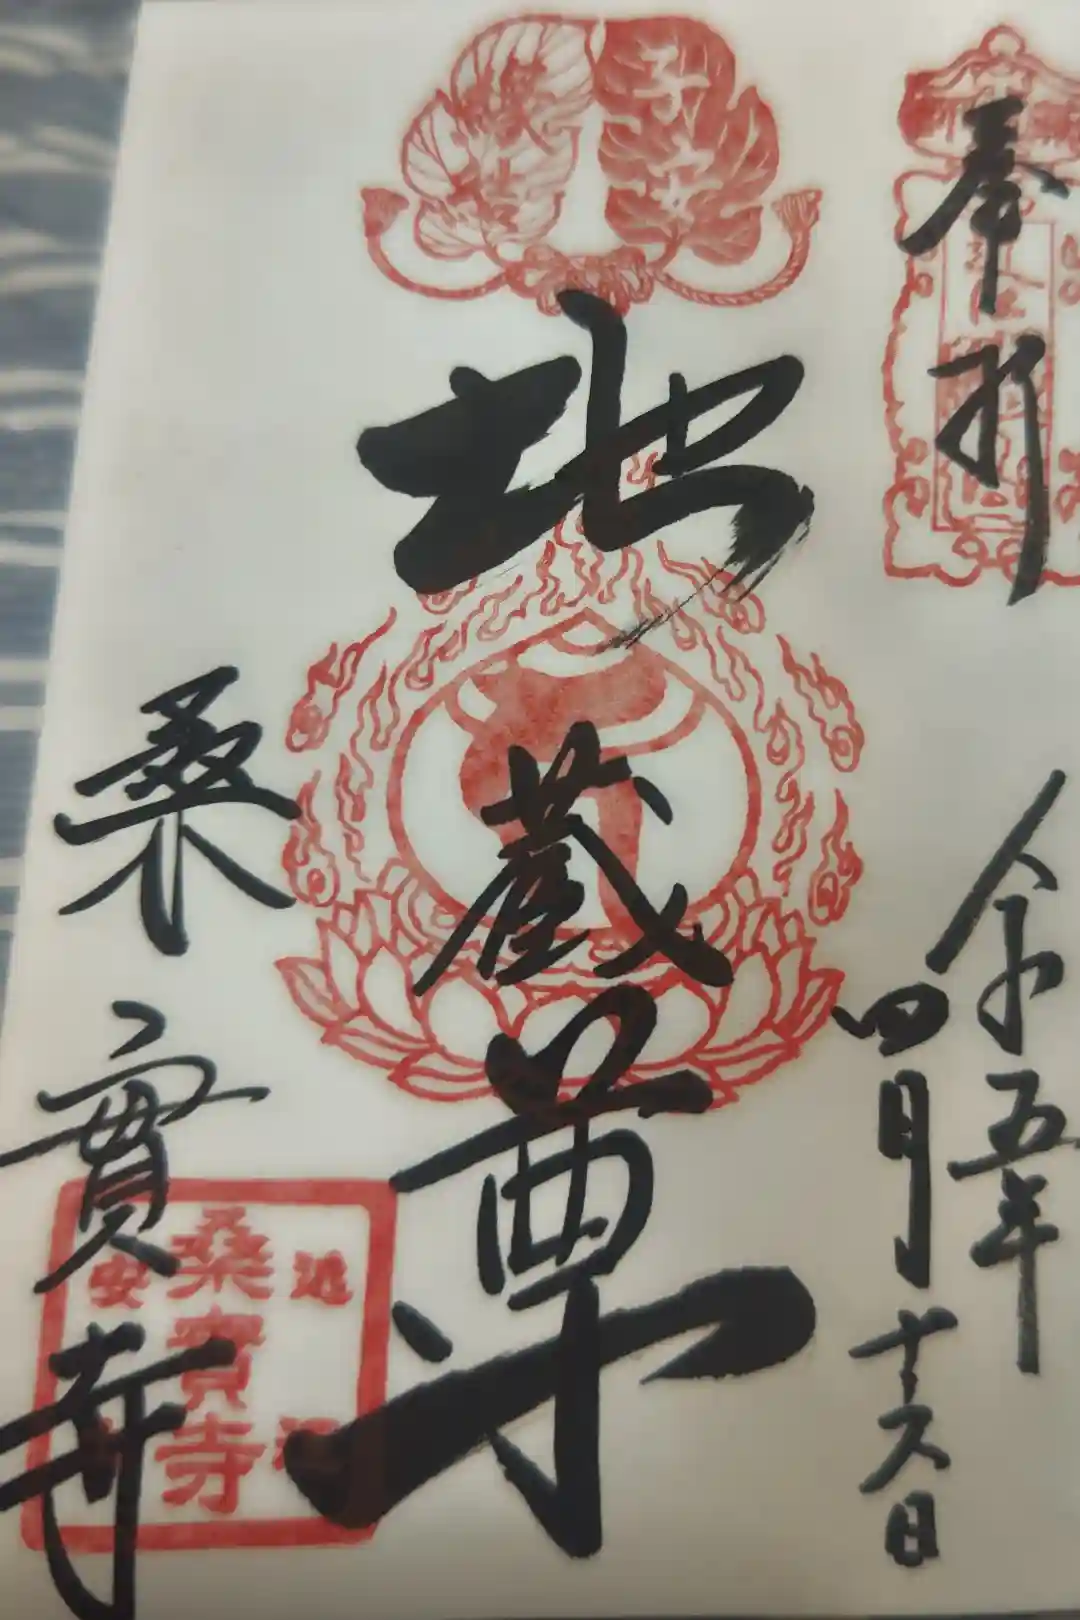 奉拝
令和五年
四月十六日
地蔵尊
桑實寺
近江
桑實寺
安土